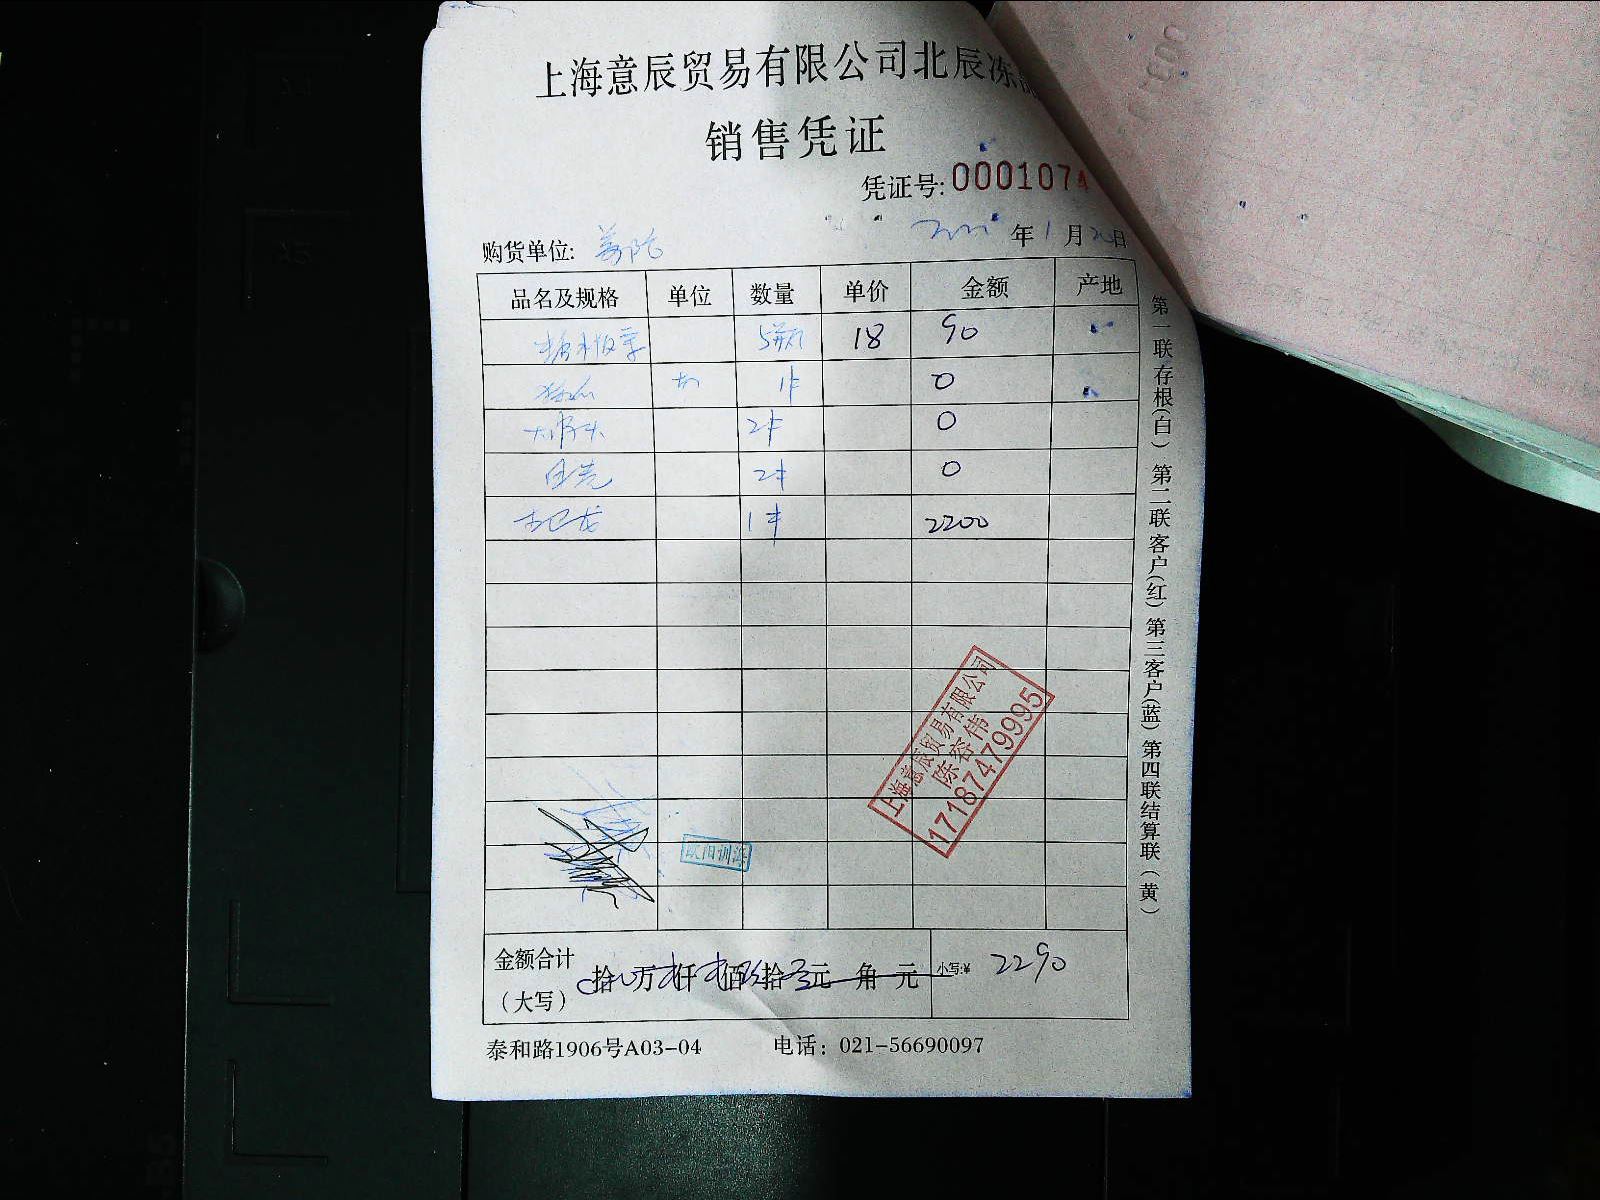 上海意辰贸易有限公司北辰冻
销售凭证
凭证号: 0001074
年1月20日
购货单位:
品名及规格 单位 数量 单价 金额 产地
5瓶 18 90
0
大骨头 2件 0
2件 0
1件 2200
上海意辰贸易有限公司
陈容伟
17187479995
金额合计
（大写） 拾 万 仟 佰 拾 元 角 元 小写:¥ 2290
泰和路1906号A03-04 电话：021-56690097
第一联存根(白) 第二联客户(红) 第三客户(蓝) 第四联结算联(黄)